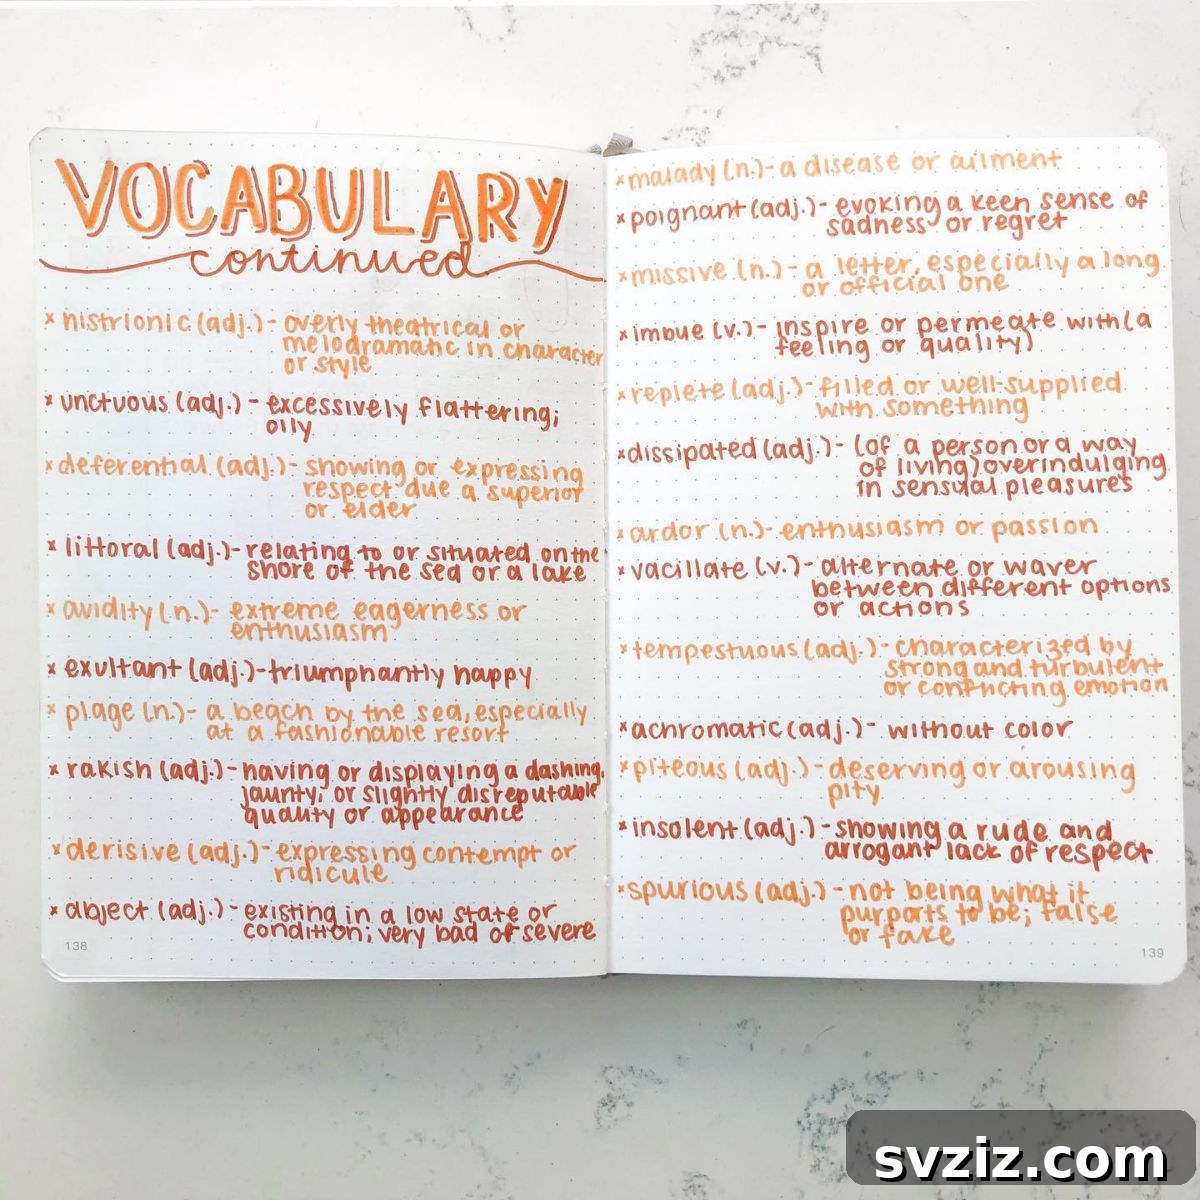 VOCABULARY
continued
× histrionic (adj.) - overly theatrical or
melodramatic in character
or style
× unctuous (adj.) - excessively flattering;
oily
× deferential (adj.) - showing or expressing
respect due a superior
or elder
× littoral (adj.) - relating to or situated on the
shore of the sea or a lake
× avidity (n.) - extreme eagerness or
enthusiasm
× exultant (adj.) - triumphantly happy
× plage (n.) - a beach by the sea, especially
at a fashionable resort
× rakish (adj.) - having or displaying a dashing,
jaunty, or slightly disreputable
quality or appearance
× derisive (adj.) - expressing contempt or
ridicule
× abject (adj.) - existing in a low state or
condition; very bad of severe
138
× malady (n.) - a disease or ailment
× poignant (adj.) - evoking a keen sense of
sadness or regret
× missive (n.) - a letter, especially a long
or official one
× imbue (v.) - inspire or permeate with (a
feeling or quality)
× replete (adj.) - filled or well-supplied
with something
× dissipated (adj.) - (of a person or a way
of living) overindulging
in sensual pleasures
× ardor (n.) - enthusiasm or passion
× vacillate (v.) - alternate or waver
between different options
or actions
× tempestuous (adj.) - characterized by
strong and turbulent
or conflicting emotion
× achromatic (adj.) - without color
× piteous (adj.) - deserving or arousing
pity
× insolent (adj.) - showing a rude and
arrogant lack of respect
× spurious (adj.) - not being what it
purports to be; false
or fake
139
svziz.com